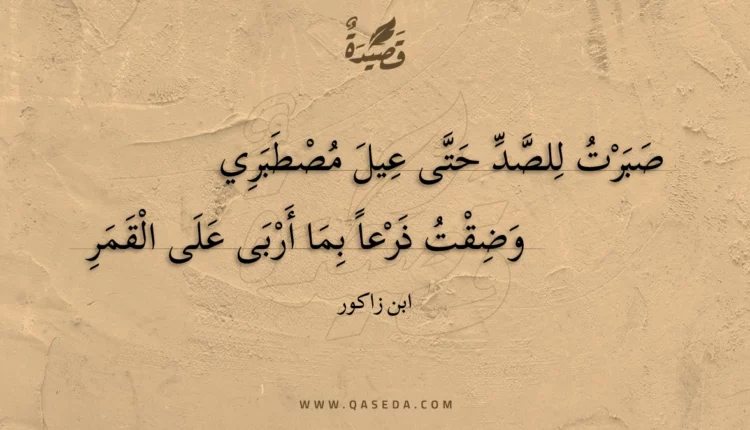 قَصِيدَةٌ
صَبَرْتُ لِلصَّدِّ حَتَّى عِيلَ مُصْطَبَرِي
وَضِقْتُ ذَرْعاً بِمَا أَرْبَى عَلَى الْقَمَرِ
ابن زاكور
WWW.QASEDA.COM